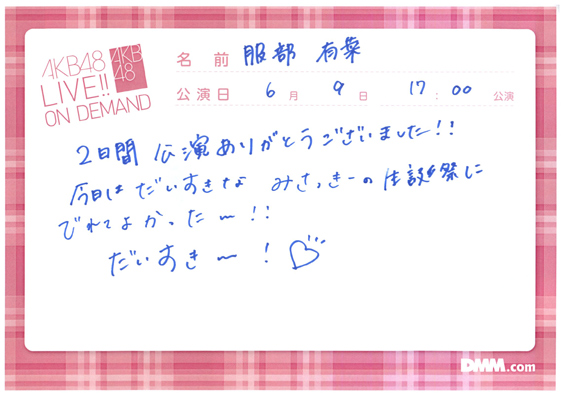 AKB48
LIVE!!
ON DEMAND
AKB
48
名前 服部 有菜
公演日 6月 9日 17:00 公演
2日間 公演ありがとうございました!!
今日は だいすきな みさっきーの生誕祭に
でれてよかったー!!
だいすきー!
DMM.com